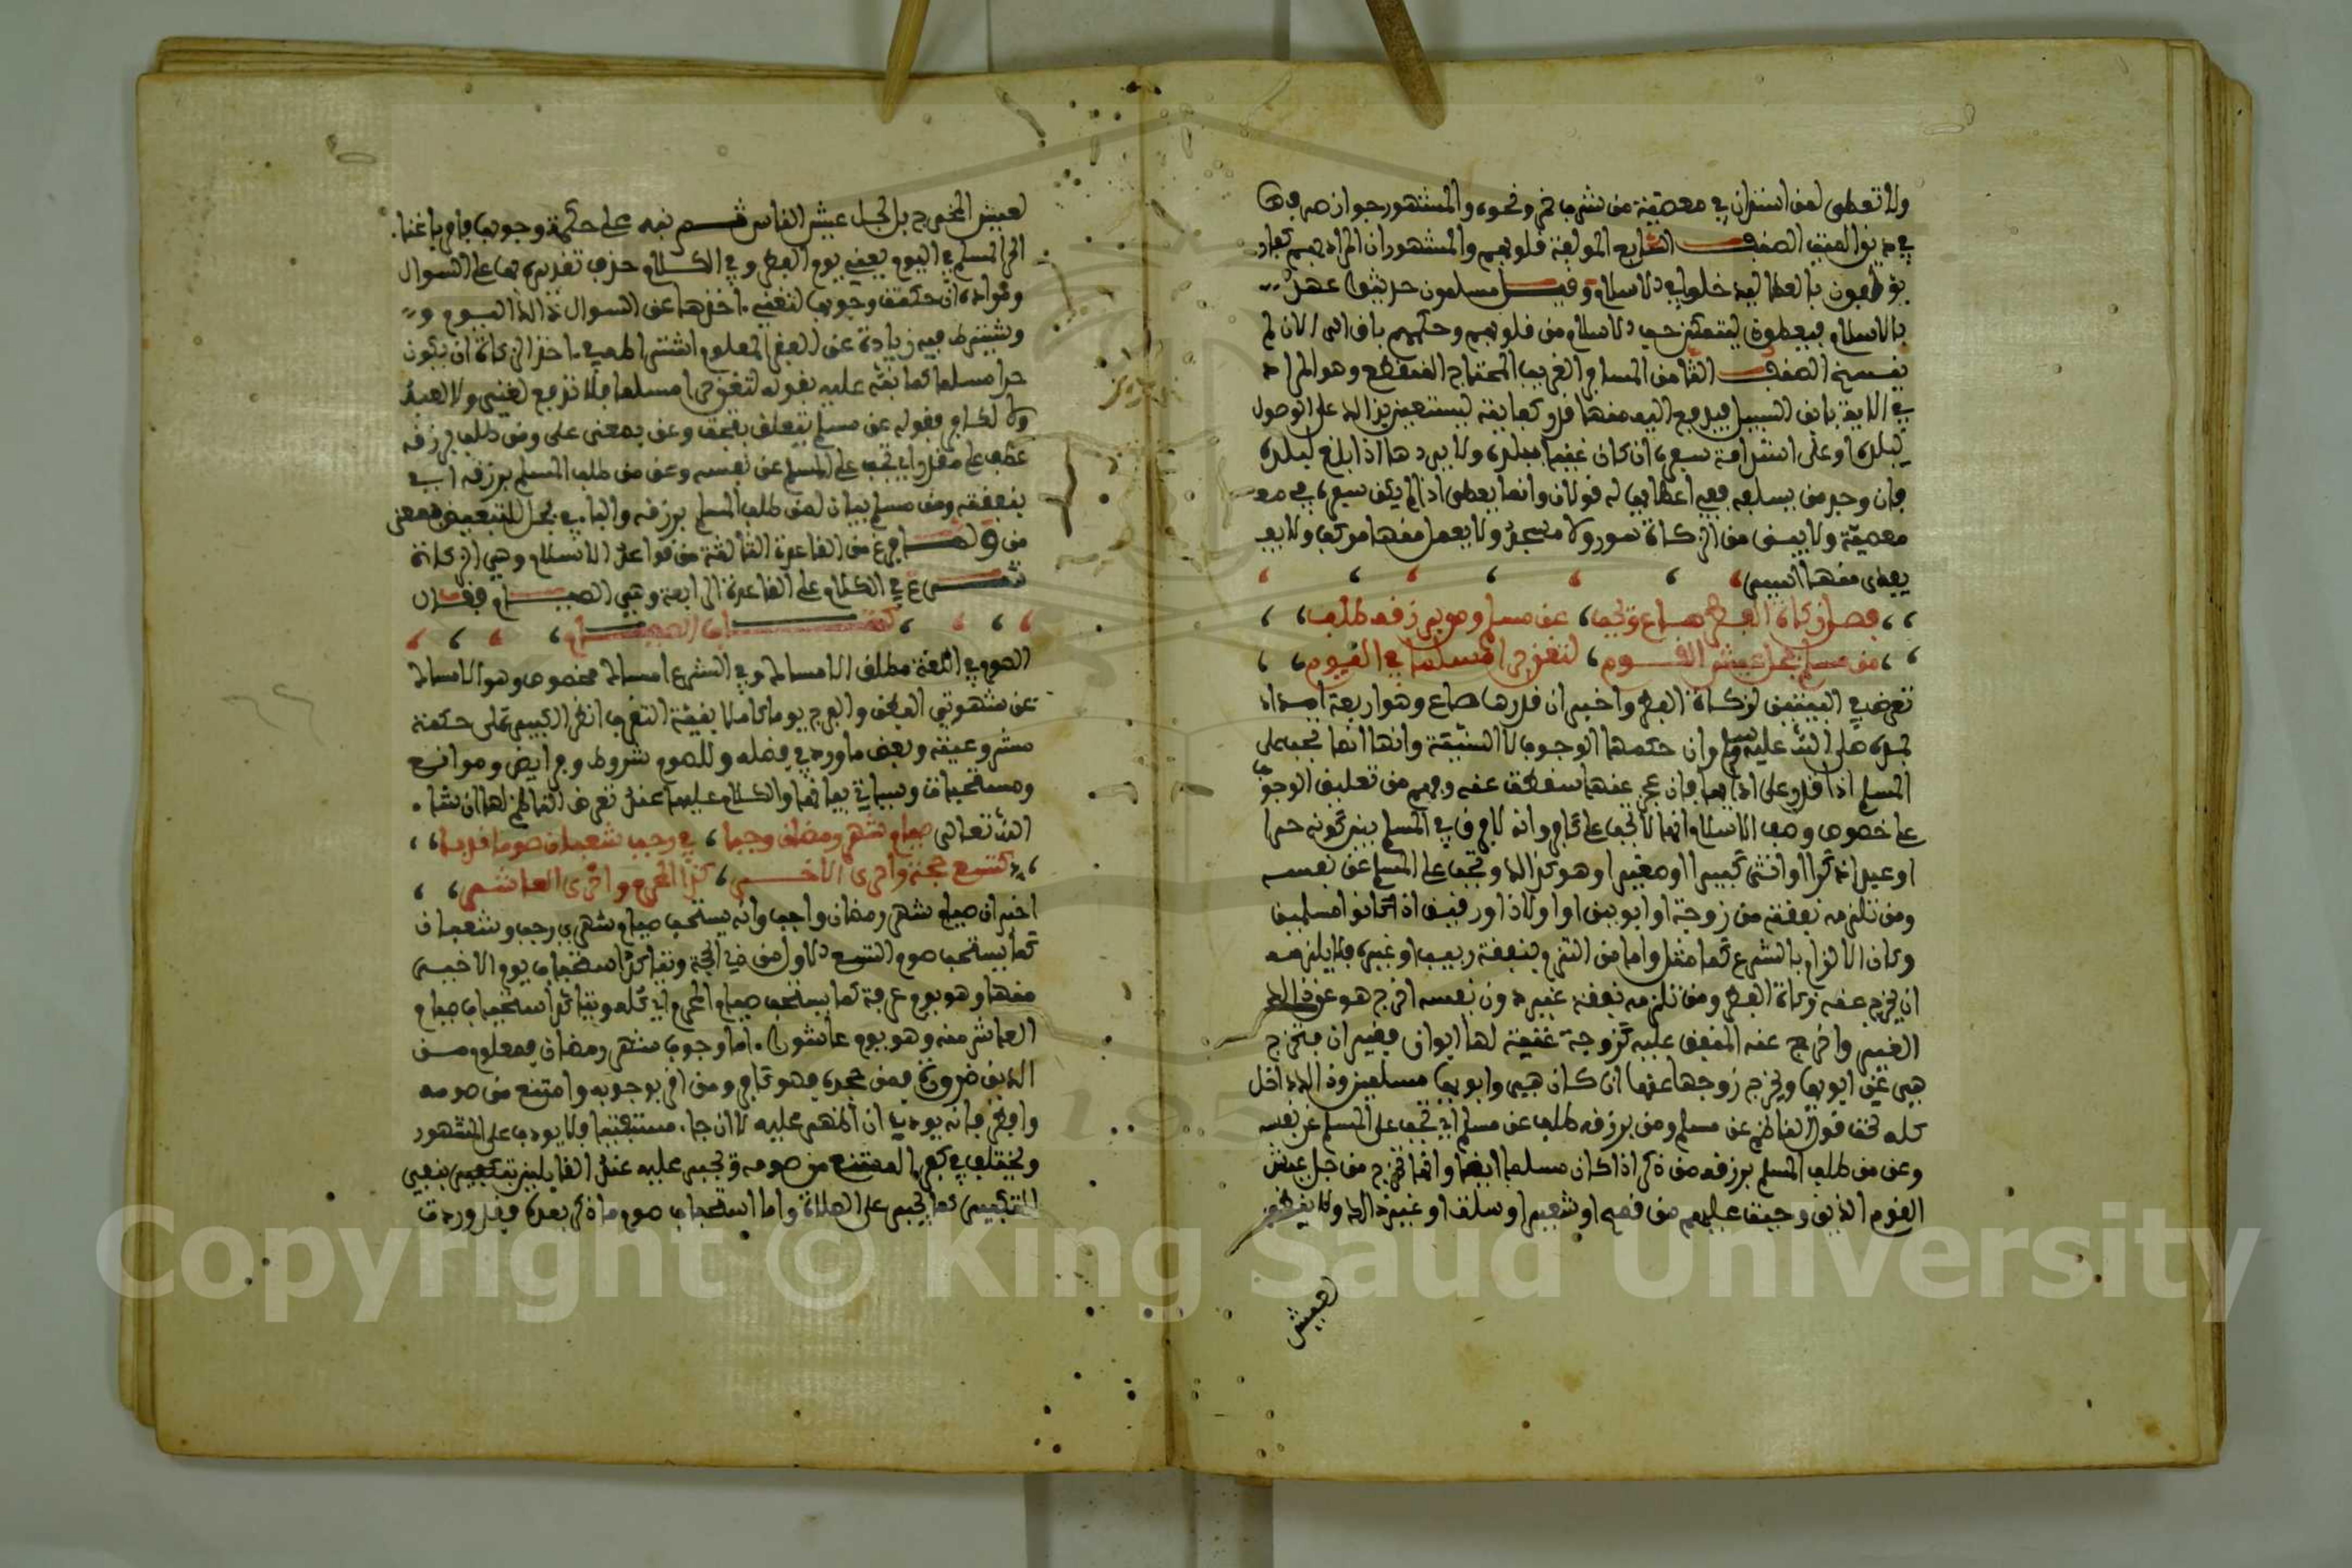 ولا تعطى لمن استدان في معصية من شرب خمر ونحوه والمشهور جواز صرفها
في دين الميت الصنف السابع المولفة قلوبهم والمشهور ان المراد بهم كفار
يولفون بالعطا ليدخلوا في الاسلام وقيل مسلمون حديثوا عهد
بالاسلام فيعطون ليتمكن حب الاسلام من قلوبهم وحكمهم باق الى الان لم
ينسخ الصنف الثامن المسافر الغريب المحتاج المنقطع وهو المراد
في الاية بابن السبيل فيدفع اليه منها قدر كفايته ليستعين بذالك على الوصول
لبلده او على استدامة سفره ان كان غنيا ببلده ولا يردها اذا بلغ لبلده
فان وجد من يسلفه ففي اعطايها له قولان وانما يعطى اذا لم يكن سفره في مع
معصية ولا يبنى من الزكاة سور ولا مسجد ولا يعمل منها مركب ولا يع
يعطى منها
فصل زكاة الفطر صاع وتجب عن مسلم ومن برزقه طلب
من مسلم بجل عيش القوم لتغن حرا مسلما في اليوم
تعرض في البيتين لزكاة الفطر واخبر ان قدرها صاع وهو اربعة امداد
بمده صلى الله عليه وسلم وان حكمها الوجوب لا السنية وانها انما تجب على
المسلم اذا قدر على ادايها فان عجز عنها سقطت عنه وفهم من تعليق الوجوب
على خصوص وصف الاسلام انها لا تجب على كافر وانه لا فرق في المسلم بين كونه حرا
او عبدا ذكرا او انثى كبيرا او صغيرا وهو كذالك وتجب على المسلم عن نفسه
ومن تلزمه نفقته من زوجة او ابوين او اولاد او رقيق اذا كانوا مسلمين
وكان الالزام بالشرع كما مثل واما من التزم بنفقة ربيب او غيره فلا يلزمه
ان يخرج عنه زكاة الفطر ومن تلزمه نفقة غيره دون نفسه اخرج هو عن ذالك
الغير واخرج عنه المنفق عليه كزوجة غنية لها ابوان فقيران فتخرج
هي عن ابويها ويخرج زوجها عنها ان كان هي وابويها مسلمين وذالك داخل
كله تحت قول الناظم عن مسلم ومن برزقه طلب عن مسلم اي تجب على المسلم عن نفسه
وعن من طلب المسلم برزقه من ذكر اذا كان مسلما ايضا وانما تخرج من جل عيش
القوم الذين وجبت عليهم من قمح او شعير او سلت او غير ذالك ولا ينظر
لعيش
لعيش المخرج بل لجل عيش الناس ثم نبه على حكمة وجوبها فامر باغنا
الحر المسلم في اليوم يعني يوم الفطر وفي الكلام حذف تقديره بها عن السوال
ومراده ان حكمة وجوبها لتغني اخذها عن السوال ذالك اليوم و
ويشترط فيه زيادة عن الفقر المعلوم اشتراطه في اخذ الزكاة ان يكون
حرا مسلما كما نبه عليه بقوله لتغن حرا مسلما فلا تدفع لغني ولا لعبد
ولا لكافر فقوله عن مسلم يتعلق بتجب وعن بمعنى على ومن طلب برزقه
عطف على مقدر اي تجب على المسلم عن نفسه وعن من طلب المسلم برزقه اي
بنفقته ومن مسلم بيان لمن طلب المسلم برزقه والبا في بجل للتبعيض بمعنى
من ولما فرغ من القاعدة الثالثة من قواعد الاسلام وهي الزكاة
شرع في الكلام على القاعدة الرابعة وهي الصيام فقال
كتاب الصيام
الصوم في اللغة مطلق الامساك وفي الشرع امساك مخصوص وهو الامساك
عن شهوتي البطن والفرج يوما كاملا بنية التقرب انظر الكبير على حكمة
مشروعيته وبعض ما ورد في فضله وللصوم شروط وفرايض وموانع
ومستحبات وسياتي بيانها والكلام عليها عند تعرض الناظم لها ان شا
الله تعالى صيام شهر رمضان وجبا في رجب شعبان صوم ندبا
كتسع حجة واحرى الاخر كذا المحرم واحرى العاشر
اخبر ان صيام شهر رمضان واجب وانه يستحب صيام شهري رجب وشعبان
كما يستحب صوم التسع الاول من ذي الحجة ويتاكد استحباب يوم الاخير
منها وهو يوم عرفة كما يستحب صيام المحرم اي كله ويتاكد استحباب صيام
العاشر منه وهو يوم عاشورا اما وجوب شهر رمضان فمعلوم من
الدين ضرورة فمن جحده فهو كافر ومن اقر بوجوبه وامتنع من صومه
وافطر فانه يودب ان ظهر عليه لا ان جا مستفتيا فلا يودب على المشهور
ويختلف في كفر الممتنع من صومه ويجبر عليه عند القايلين بتكفير بغير
التكفير كما يجبر على الصلاة واما استحباب صوم ما ذكر بعده فقد وردت
Copyright © King Saud University
195